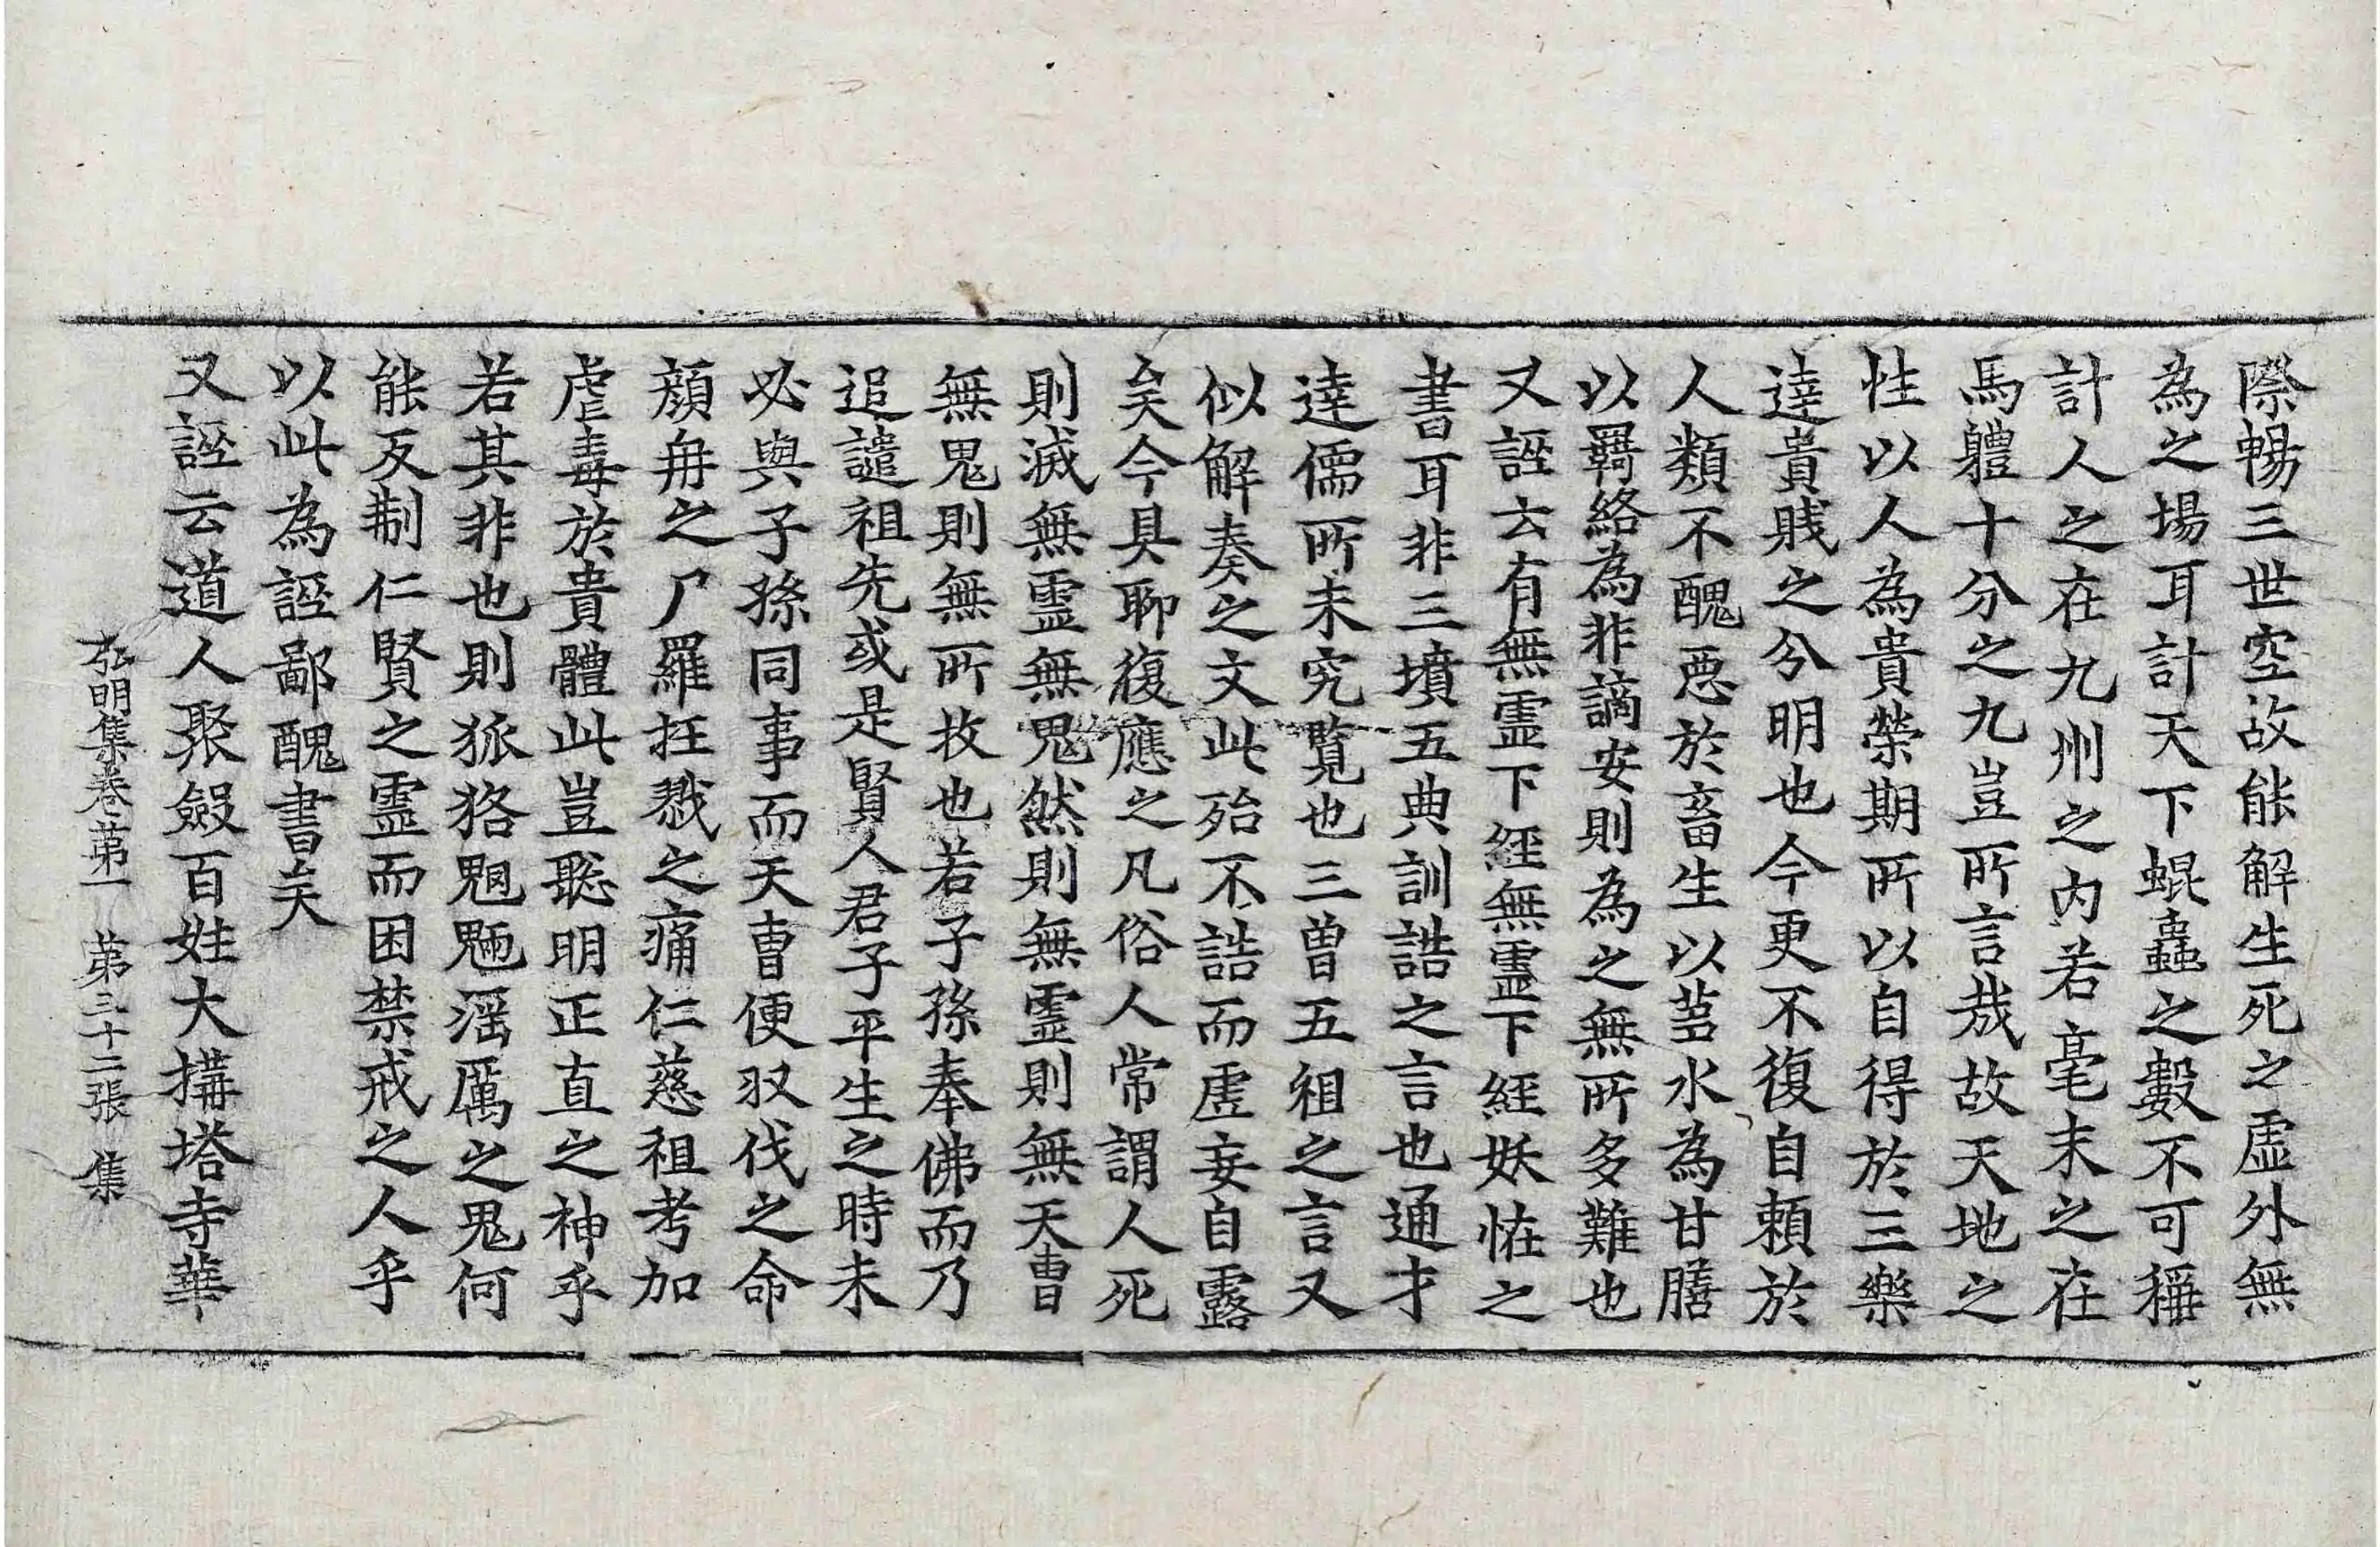 際暢三世空故能解生死之虛外無
為之場耳計天下蜫蟲之數不可稱
計人之在九州之內若毫末之在
馬軆十分之九豈所言哉故天地之
性以人為貴榮期所以自得於三樂
達貴賤之分明也今更不復自賴於
人類不醜惡於畜生以蒭水為甘膳
以羇絡為非謫安則為之無所多難也
又誣云有無靈下經無靈下經妖恠之
書耳非三墳五典訓誥之言也通才
達儒所未究覽也三曾五祖之言又
似解奏之文此殆不誥而虛妄自露
矣今具聊復應之凡俗人常謂人死
則滅無靈無鬼然則無靈則無天曹
無鬼則無所收也若子孫奉佛而乃
追譴祖先或是賢人君子平生之時未
必與子孫同事而天曹便収伐之命
顔冉之尸羅抂戮之痛仁慈祖考加
虐毒於貴體此豈聡明正直之神乎
若其非也則狐狢魍魎淫厲之鬼何
能反制仁賢之靈而困禁戒之人乎
以此為誣鄙醜書矣
又誣云道人聚斂百姓大搆塔寺華
弘明集卷第一　第三十二張　集